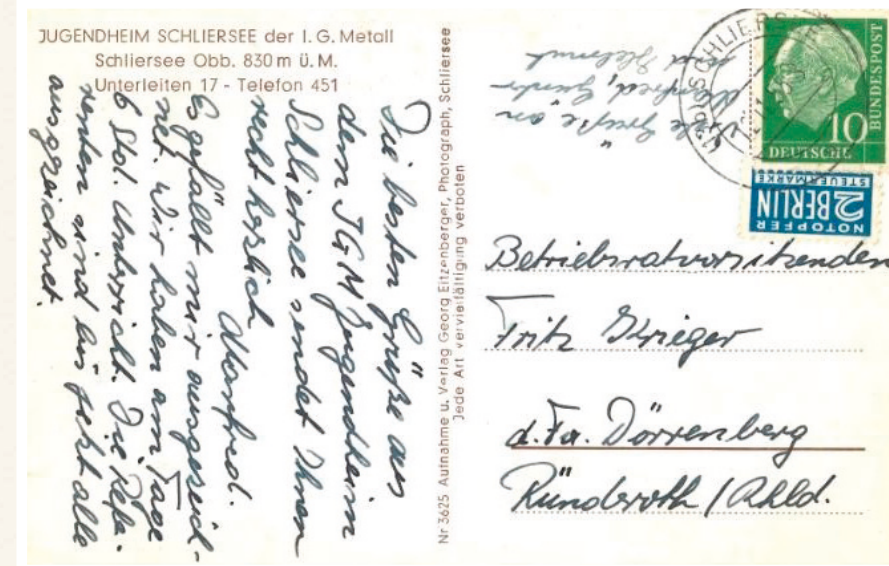 JUGENDHEIM SCHLIERSEE der I. G. Metall
Schliersee Obb. 830 m ü. M.
Unterleiten 17 - Telefon 451
Die besten Grüße aus
dem IGM Jugendheim
Schliersee sendet Ihnen
recht herzlich
Manfred.
Es gefällt mir ausgezeich-
net. Wir haben am Tage
6 Std. Unterricht. Die Refe-
renten sind bis jetzt alle
ausgezeichnet.
Nr 3625 Aufnahme u. Verlag Georg Eitzenberger, Photograph, Schliersee
Jede Art vervielfältigung verboten
Grüße an
Manfred,
und Helmut
SCHLIERSEE
10
DEUTSCHE
BUNDESPOST
NOTOPFER
2 BERLIN
STEUERMARKE
Betriebsratvorsitzenden
Fritz Krieger
d. Fa. Dörrenberg
Ründeroth / Rhld.